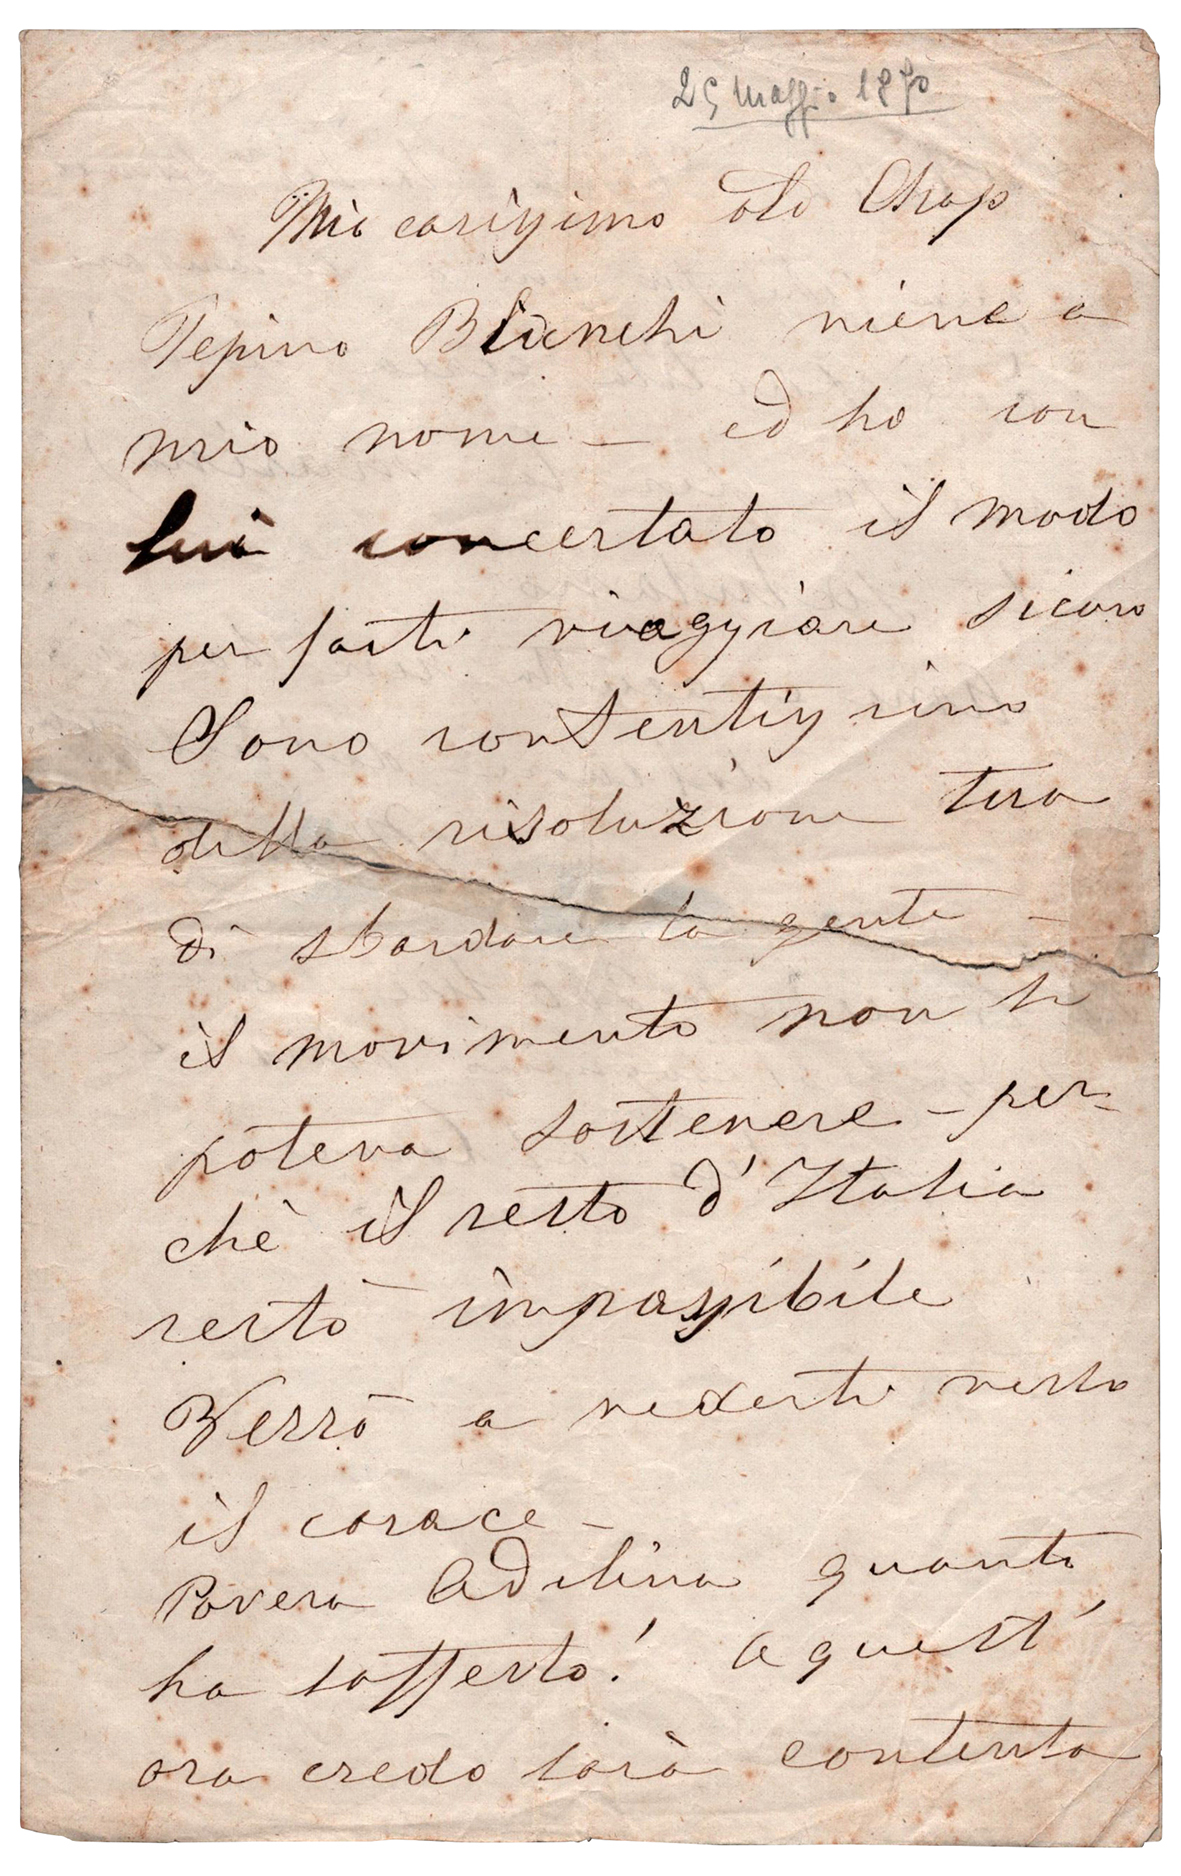 25 Maggio 1870
Mio carissimo old Chap
Pepino Bianchi viene a
mio nome – ed ho con
lui concertato il modo
per farti viaggiare sicuro
Sono contentissimo
della risoluzione tua
di sbandare la gente –
il movimento non si
poteva sostenere – per-
chè il resto d'Italia
restò impassibile
Verrò a vederti verso
il corace –
Povera Adelina quanto
ha sofferto! a quest'
ora credo sarà contenta